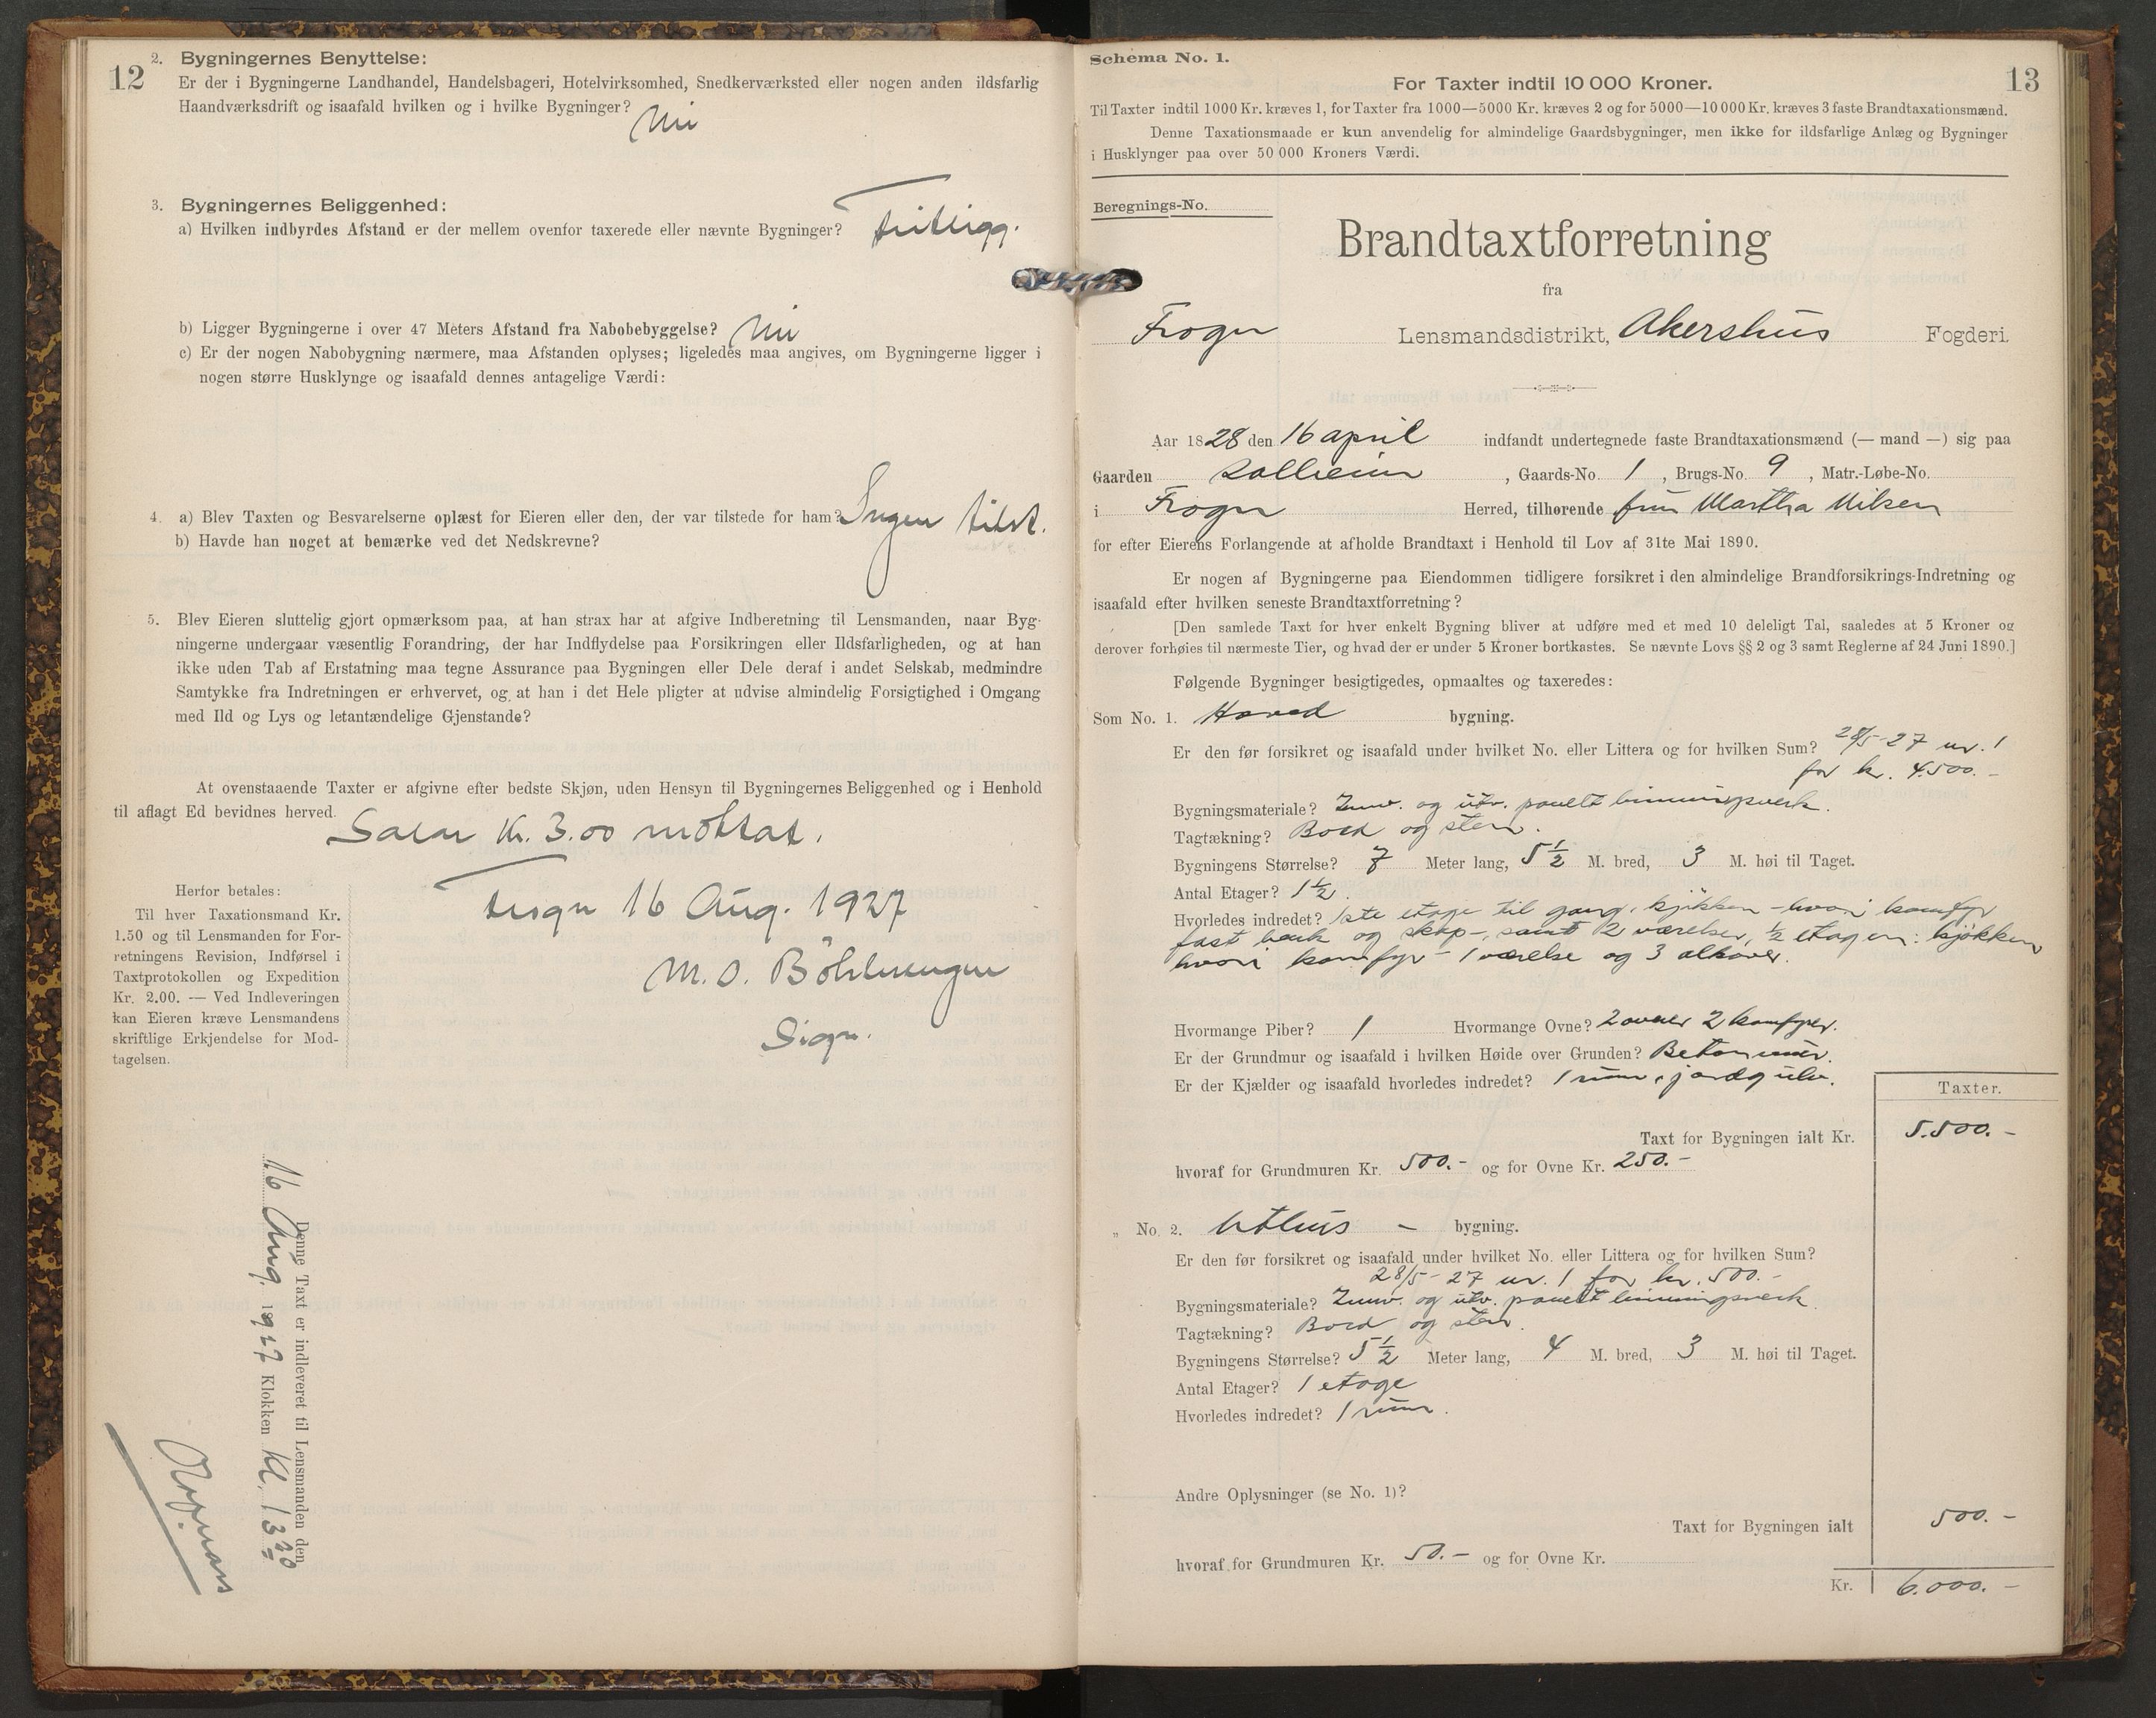 12
2. Bygningernes Benyttelse:
Er der i Bygningerne Landhandel, Handelsbageri, Hotelvirksomhed, Snedkerværksted eller nogen anden ildsfarlig
Haandværksdrift og isaafald hvilken og i hvilke Bygninger?
Nei
3. Bygningernes Beliggenhed:
a) Hvilken indbyrdes Afstand er der mellem ovenfor taxerede eller nævnte Bygninger? Fritligg.
b) Ligger Bygningerne i over 47 Meters Afstand fra Nabobebyggelse? Nei
c) Er der nogen Nabobygning nærmere, maa Afstanden oplyses; ligeledes maa angives, om Bygningerne ligger i
nogen større Husklynge og isaafald dennes antagelige Værdi:
4. a) Blev Taxten og Besvarelserne oplæst for Eieren eller den, der var tilstede for ham? Ingen tilst.
b) Havde han noget at bemærke ved det Nedskrevne?
5. Blev Eieren sluttelig gjort opmærksom paa, at han strax har at afgive Indberetning til Lensmanden, naar Byg-
ningerne undergaar væsentlig Forandring, der har Indflydelse paa Forsikringen eller Ildsfarligheden, og at han
ikke uden Tab af Erstatning maa tegne Assurance paa Bygningen eller Dele deraf i andet Selskab, medmindre
Samtykke fra Indretningen er erhvervet, og at han i det Hele pligter at udvise almindelig Forsigtighed i Omgang
med Ild og Lys og letantændelige Gjenstande?
At ovenstaaende Taxter er afgivne efter bedste Skjøn, uden Hensyn til Bygningernes Beliggenhed og i Henhold
til aflagt Ed bevidnes herved.
Salar Kr. 3.00 mottat.
Herfor betales:
Til hver Taxationsmand Kr.
1.50 og til Lensmanden for For-
retningens Revision, Indførsel i
Taxtprotokollen og Expedition
Kr. 2.00. — Ved Indleveringen
kan Eieren kræve Lensmandens
skriftlige Erkjendelse for Mod-
tagelsen.
Frogn 16 Aug. 1927
M. O.
Sign.
Denne Taxt er indleveret til Lensmanden den
16 Aug. 1927 Klokken Kl. 13 20
13
Schema No. 1.
For Taxter indtil 10 000 Kroner.
Til Taxter indtil 1000 Kr. kræves 1, for Taxter fra 1000—5000 Kr. kræves 2 og for 5000—10 000 Kr. kræves 3 faste Brandtaxationsmænd.
Denne Taxationsmaade er kun anvendelig for almindelige Gaardsbygninger, men ikke for ildsfarlige Anlæg og Bygninger
i Husklynger paa over 50 000 Kroners Værdi.
Beregnings-No.
Brandtaxtforretning
fra
Frogn Lensmandsdistrikt, Akershus Fogderi.
Aar 1828 den 16 april indfandt undertegnede faste Brandtaxationsmænd (— mand —) sig paa
Gaarden Solheim, Gaards-No. 1, Brugs-No. 9, Matr.-Løbe-No.
i Frogn Herred, tilhørende fru Martha Nilsen
for efter Eierens Forlangende at afholde Brandtaxt i Henhold til Lov af 31te Mai 1890.
Er nogen af Bygningerne paa Eiendommen tidligere forsikret i den almindelige Brandforsikrings-Indretning og
isaafald efter hvilken seneste Brandtaxtforretning?
[Den samlede Taxt for hver enkelt Bygning bliver at udføre med et med 10 deleligt Tal, saaledes at 5 Kroner og
derover forhøies til nærmeste Tier, og hvad der er under 5 Kroner bortkastes. Se nævnte Lovs §§ 2 og 3 samt Reglerne af 24 Juni 1890.]
Følgende Bygninger besigtigedes, opmaaltes og taxeredes:
Som No. 1. Hoved bygning.
Er den før forsikret og isaafald under hvilket No. eller Littera og for hvilken Sum? 28/5-27 nr. 1
for kr. 4.500.-
Bygningsmateriale? Innv. og utv. panelt binningsverk.
Tagtækning? Bord og sten.
Bygningens Størrelse? 7 Meter lang, 5 1/2 M. bred, 3 M. høi til Taget.
Antal Etager? 1 1/2.
Hvorledes indredet? 1ste etage til gang, kjøkken - hvori komfyr
fast benk og skap -, samt 2 værelser, 1/2 etagen: kjøkken
hvori komfyr - 1 værelse og 3 alkover.
Hvormange Piber? 1 Hvormange Ovne? 2 ovner 2 komfyrer.
Er der Grundmur og isaafald i hvilken Høide over Grunden? Betonmur.
Er der Kjælder og isaafald hvorledes indredet? 1 rum, jordgulv.
Taxter.
Taxt for Bygningen ialt Kr. 5.500.-
hvoraf for Grundmuren Kr. 500.- og for Ovne Kr. 250.-
„ No. 2. Uthus - bygning.
Er den før forsikret og isaafald under hvilket No. eller Littera og for hvilken Sum?
28/5-27 nr. 1 for kr. 500.-
Bygningsmateriale? Innv. og utv. panelt binningsverk.
Tagtækning? Bord og sten.
Bygningens Størrelse? 5 1/2 Meter lang, 4 M. bred, 3 M. høi til Taget.
Antal Etager? 1 etage
Hvorledes indredet? 1 rum.
Andre Oplysninger (se No. 1)?
Taxt for Bygningen ialt 500.-
hvoraf for Grundmuren Kr. 50.- og for Ovne Kr.
Kr. 6.000.-